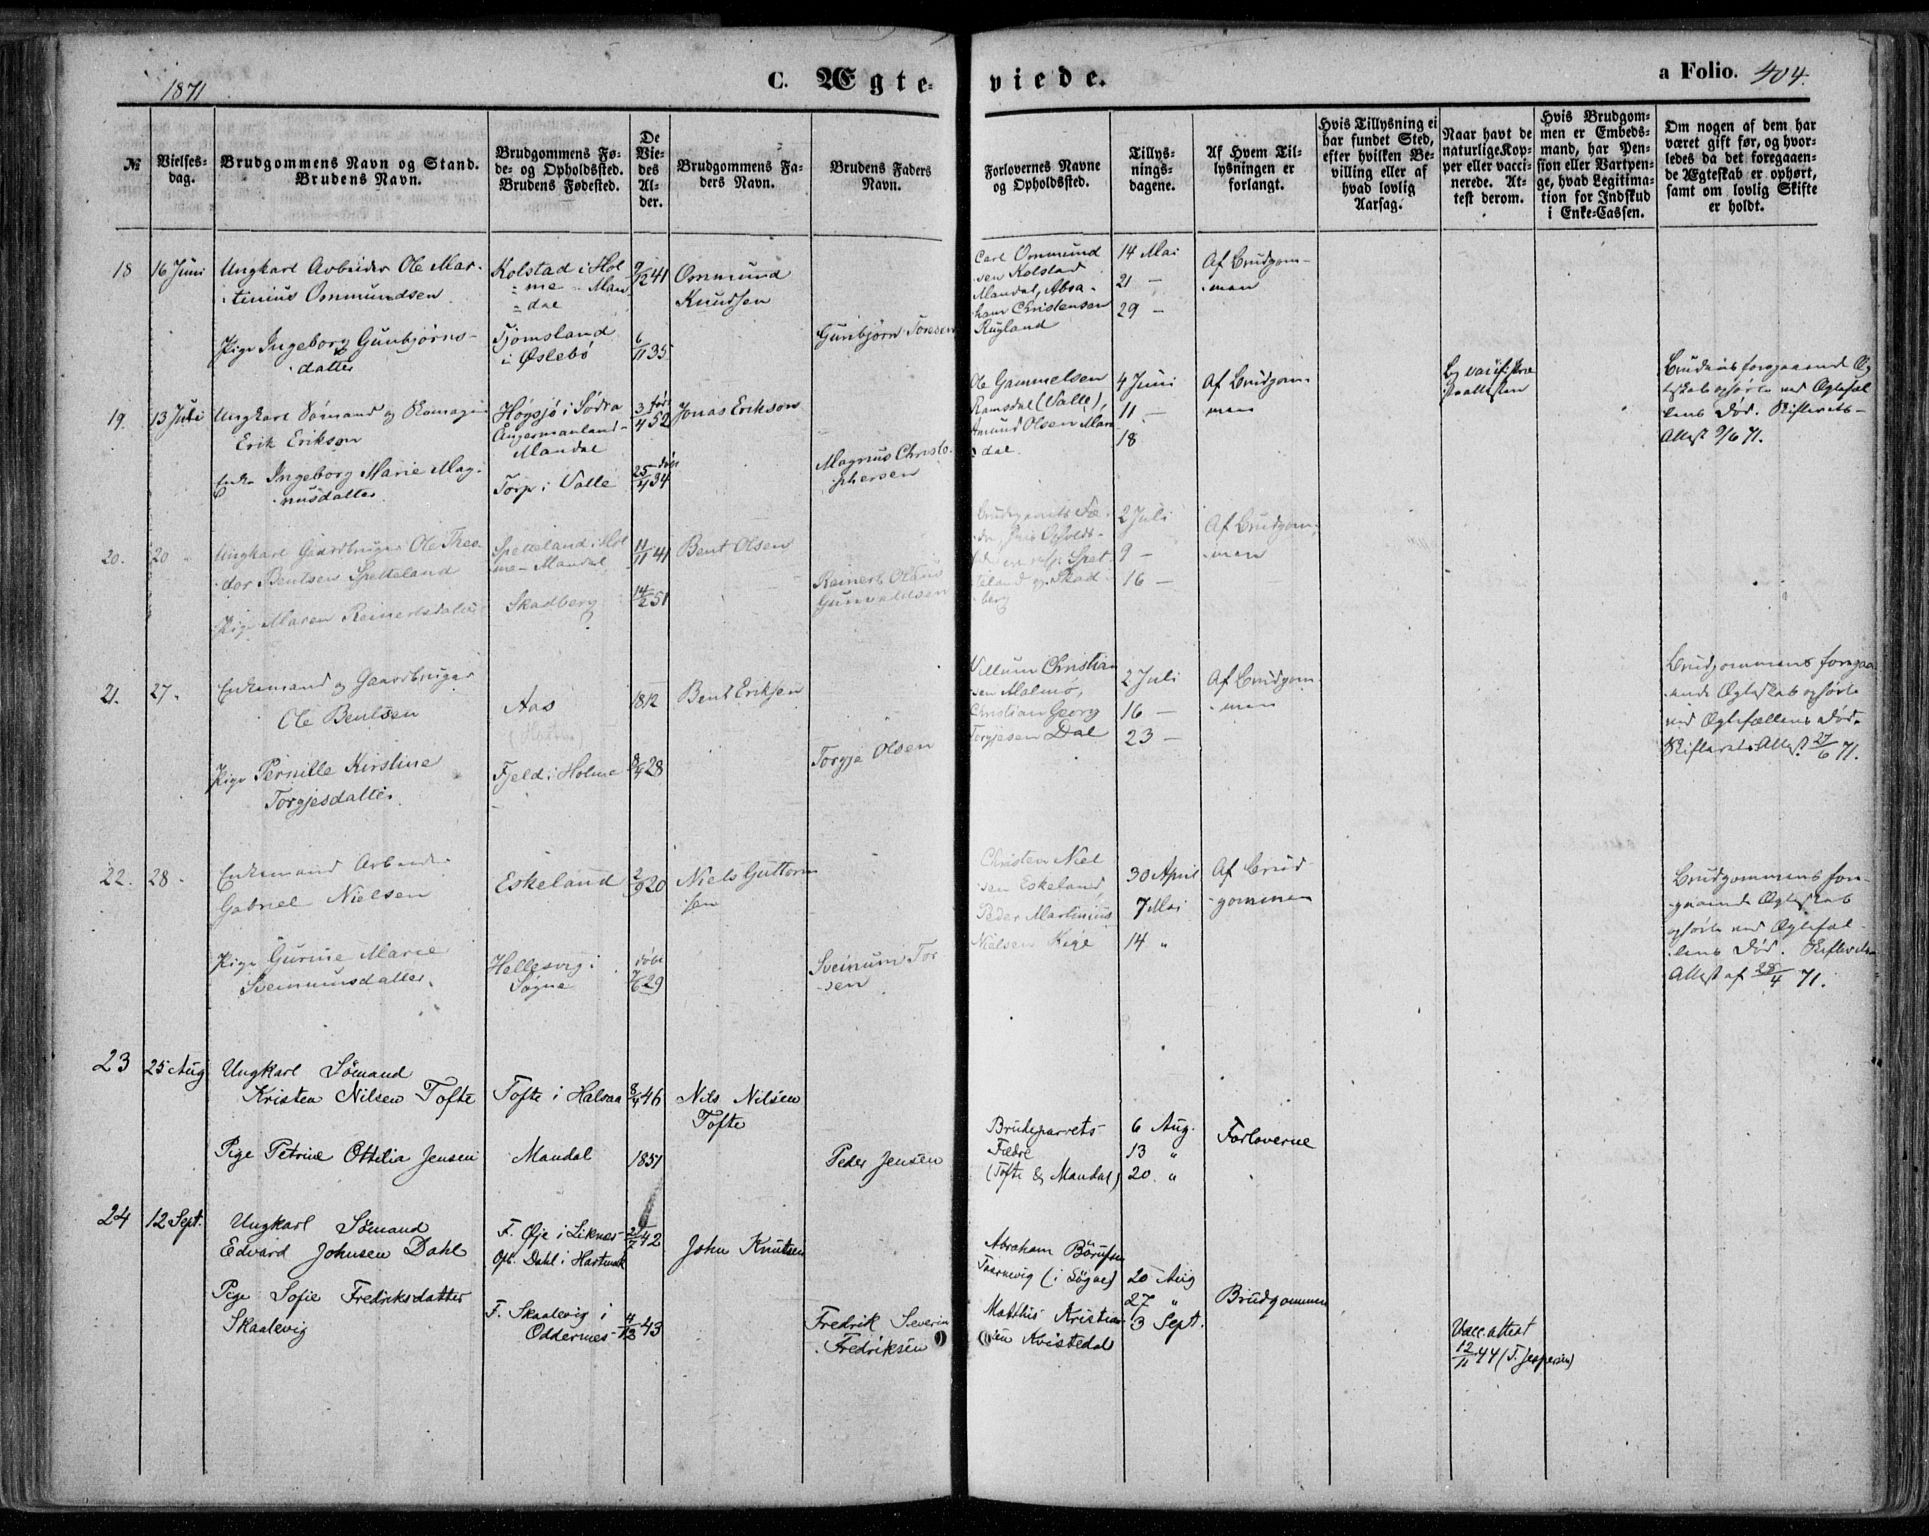 1871
C. Ægteviede.
a Folio. 404.
№
Vielsesdag.
Brudgommens Navn og Stand.
Brudens Navn.
Brudgommens Føde- og Opholdssted.
Brudens Fødested.
De Viedes Alder.
Brudgommens Faders Navn.
Brudens Faders Navn.
Forlovernes Navne og Opholdssted.
Tillysningsdagene.
Af Hvem Tillysningen er forlangt.
Hvis Tillysning ei har fundet Sted, efter hvilken Bevilling eller af hvad lovlig Aarsag.
Naar havt de naturlige Kopper eller vaccinerede. Attest derom.
Hvis Brudgommen er Embedsmand, har Pension eller Vartpenge, hvad Legitimation for Indskud i Enke-Cassen.
Om nogen af dem har været gift før, og hvorledes da det foregaaende Ægteskab er ophørt, samt om lovlig Skifte er holdt.
18
16 Juni
Ungkarl Arbeider Ole Mar-
tinius Ommundsen
Kolstad i Hol
me - Man
dal
9/12 41
Ommund
Knudsen
Carl Ommund
sen Kolstad
Mandal, Abra-
ham Christensen
Rugland
14 Mai
21 —
29 —
Af Brudgom-
men
Pige Ingeborg Gunbjørns-
datter
Tjomsland
i Øslebø
6/11 35
Gunbjørn Toresen
19.
13 Juli
Ungkarl Sømand og
Erik Erikson
Høgsjø i Södra
Ångermanland -
Mandal
3/4 52
Jonas Erikson
Ole Gammelsen
Ramsdal (Valle),
Amund Olsen Man
dal
4 Juni
11 —
18
Af Brudgom-
men
Brudens foregaaende Æg
teskab ophørte ved Ægtefæl
lens Død. Skifterets-
Attest 9/6 71.
Enke Ingeborg Marie Mag-
nusdatter
Torp i Valle
25/4 34
Magnus Christo-
phersen
20.
20 "
Ungkarl Gaardbruger Ole Theo-
dor Bentsen Spetteland
Spetteland i Hol
me - Mandal
11/11 41
Bent Olsen
Brudeparrets Fæ-
dre
Spet-
teland og Skad-
berg
2 Juli
9 —
16 —
Af Brudgom-
men
Pige Maren Reinertsdatter
Skadberg
14/2 51
Reinert Olaus
Gunvaldsen
21.
27.
Enkemand og Gaardbruger
Ole Bentsen
Aas
1812
Bent Eriksen
Villum Christian
sen Malmø,
Christian Georg
Torgjesen Dal
2 Juli
16 —
23 —
Af Brudgom-
men
Brudgommens foregaa-
ende Ægteskab ophørte
ved Ægtefællens Død.
Skifterets Attest 27/6 71.
Pige Pernille Kirstine
Torgjesdatter
Fjeld i Holme
8/4 28
Torgje Olsen
22.
28 "
Enkemand Arbeider
Gabriel Nielsen
Eskeland
2/9 20
Niels Guttorm
sen
Christen Niel
sen Eskeland,
Peder Martinius
Nielsen Kige
30 April
7 Mai
14 "
Af Brud-
gommen
Brudgommens fore-
gaaende Ægteskab
ophørte ved Ægtefæl-
lens Død. Skifterets
Attest af 28/4 71.
Pige Gurine Marie
Sveinumsdatter
Hellesvig i
Søgne
døbt
7/6 29
Sveinum Tor
sen
23
25 Aug
Ungkarl Sömand
Kristen Nilsen Tofte
Tofte i Halsaa
8/4 46
Nils Nilsen
Tofte
Brudeparrets
Fædre
(Tofte & Mandal)
6 Aug.
13 "
20 "
Forloverne
Pige Petrine Ottilia Jensen
Mandal
1851
Peder Jensen
24
12 Sept.
Ungkarl Sömand
Edvard Johnsen Dahl
F. Øje i Liknes -
Oph. Dahl i Hartmark
21/7 42
John Knutsen
Abraham Börufsen
Taanevig (i Søgne)
Matthis Kristian-
sen Kvistedal
20 Aug
27 "
3 Sept.
Brudgommen
Pige Sofie Fredriksdatter
Skaalevig
F. Skaalevig i
Oddernes -
4/12 43
Fredrik Severin
Fredriksen
Vacc. attest
12/11 44 (T. Jespersen)